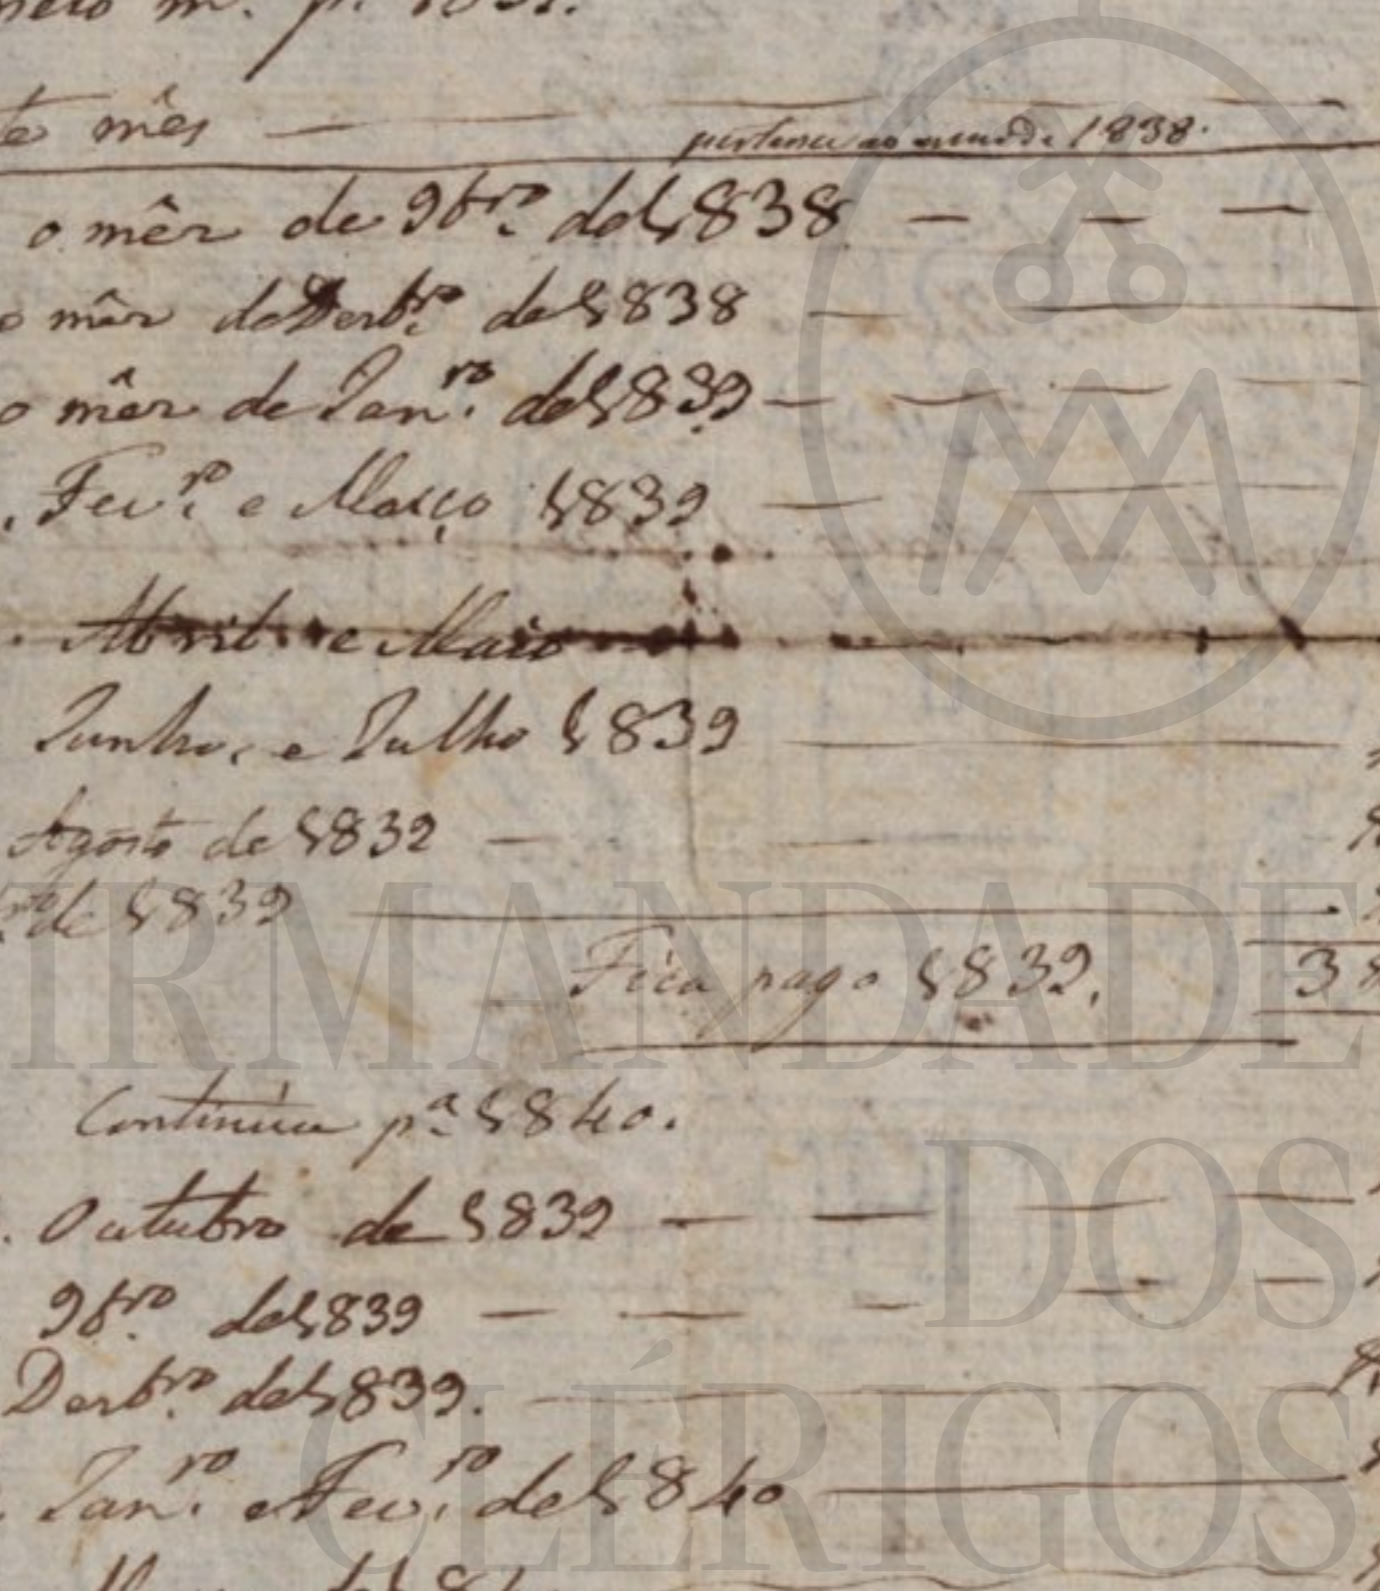 te mês
pertence ao anno de 1838.
o mêz de 9br.º de 1838
o mêz de Dezbr.º de 1838
o mêz de Jan.ro de 1839
Fev.ro e Março 1839
Abril e Maio
Junho, e Julho 1839
Agosto de 1839
de 1839
Fica pago 1839. 38
Continúa p.ª 1840.
Outubro de 1839
9br.º de 1839
Dezbr.º de 1839.
Jan.ro e Fev.ro de 1840
IRMANDADE
DOS
CLÉRIGOS